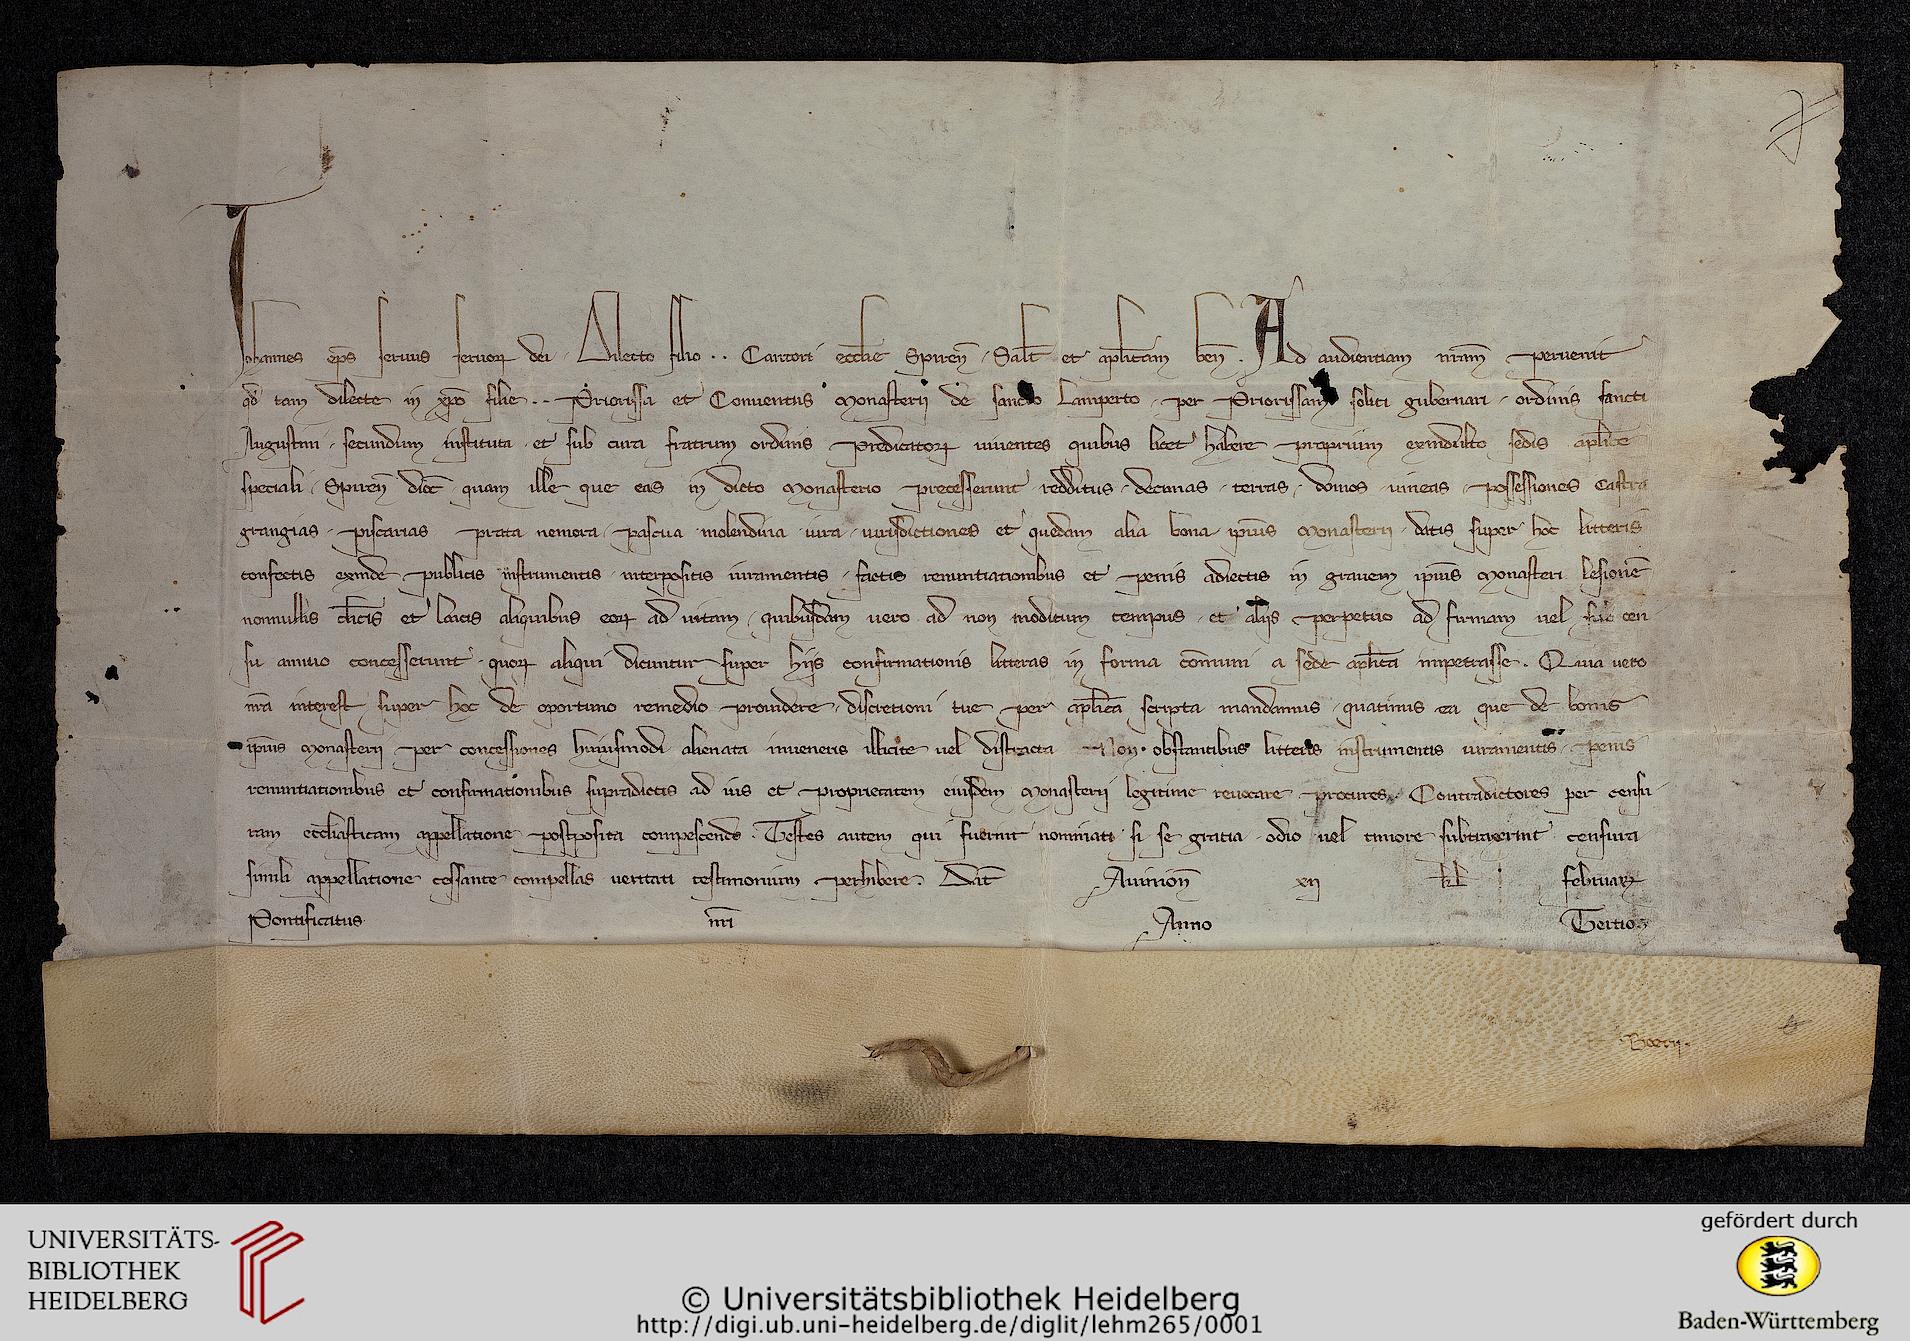 Iohannes ep̄s seruus seruoꝝ dei. Dilecto filio .. Cantori eccl̄ie Spireñ. Salt̄ et apl̄icam beñ. Ad audientiam nr̄am peruenit
qđ tam dilecte in xp̄o filie .. Priorissa et Conuentus Monasterij de sancto Lamperto. per Priorissam soliti gubernari. ordinis sancti
Augustini. secundum instituta. et sub cura fratrum ordinis Predicatoꝝ uiuentes quibus licet habere proprium exindulto sedis apl̄ice
speciali. Spireñ dioc̄. quam ille que eas in dicto Monasterio precesserunt. redditus. decimas. terras. domos. uineas. possessiones Castra
grangias. piscarias prata nemora. pascua. molendina. iura. iurisdictiones et quedam alia bona ip̄ius Monasterij. datis super hoc litteris
confectis exinde publicis instrumentis. interpositis iuramentis. factis renuntiationibus et penis adiectis in grauem ip̄ius Monasterii lesionē
nonnullis cl̄icis et laicis aliquibus eoꝝ ad uitam. quibusdam uero ad non modicum tempus. et alijs perpetuo ad firmam uel sub cen
su annuo concesserunt. quoꝝ aliqui dicuntur super hijs confirmationis litteras in forma cōmuni a sede apl̄ica impetrasse. Quia uero
nr̄a interest super hoc de oportuno remedio prouidere. discretioni tue per apl̄ica scripta mandamus. quatinus ea que de bonis
ip̄ius Monasterij per concessiones huiusmodi alienata inueneris illicite uel distracta Non obstantibus litteris instrumentis iuramentis. penis
renuntiationibus et confirmationibus supradictis ad ius et proprietatem eiusdem Monasterij legitime reuocare procures. Contradictores per censu
ram eccl̄iasticam appellatione postposita compescendo. Testes autem qui fuerint nominati si se gratia. odio uel timore subtraxerint censura
simili appellatione cessante compellas ueritati testimonium perhibere. Dat̄ Auinioñ xij kl̄ februarꝝ
Pontificatus nr̄i Anno Tertio
UNIVERSITÄTS-
BIBLIOTHEK
HEIDELBERG
© Universitätsbibliothek Heidelberg
http://digi.ub.uni-heidelberg.de/diglit/lehm265/0001
gefördert durch
Baden-Württemberg